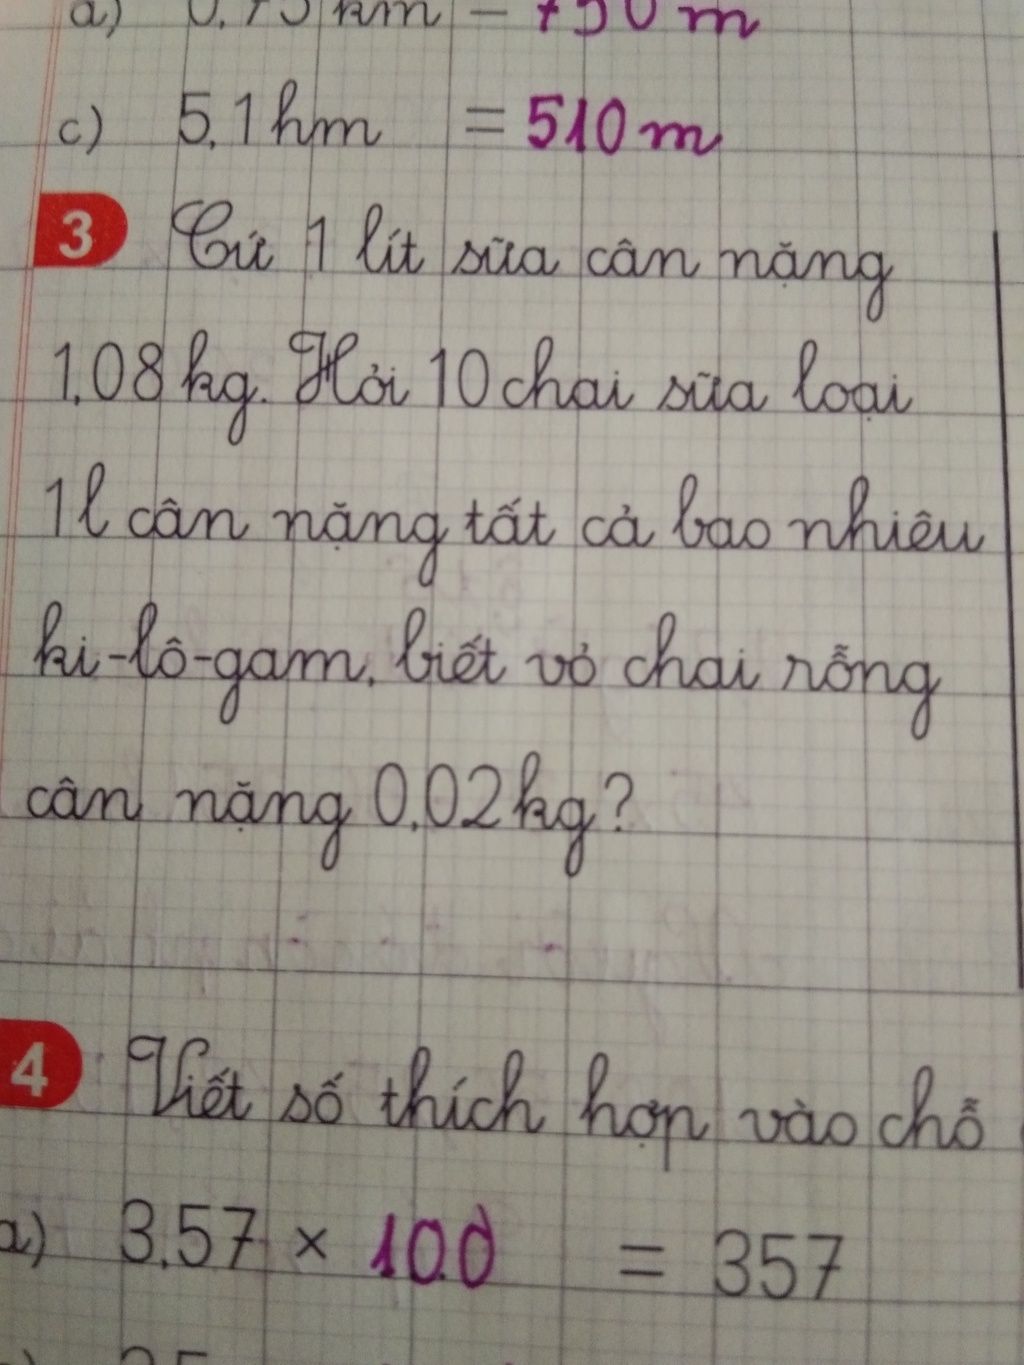 a) 0,75 km = 750 m
c) 5,1hm = 510 m
3 Cứ 1 lít sữa cân nặng
1,08kg. Hỏi 10 chai sữa loại
1l cân nặng tất cả bao nhiêu
ki-lô-gam, biết vỏ chai rỗng
cân nặng 0,02kg?
4 Viết số thích hợp vào chỗ
a) 3,57 × 100 = 357